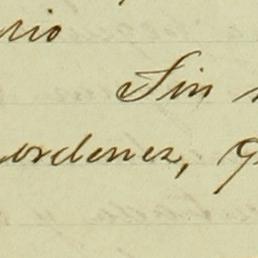 rio
Sin
ordenes, q